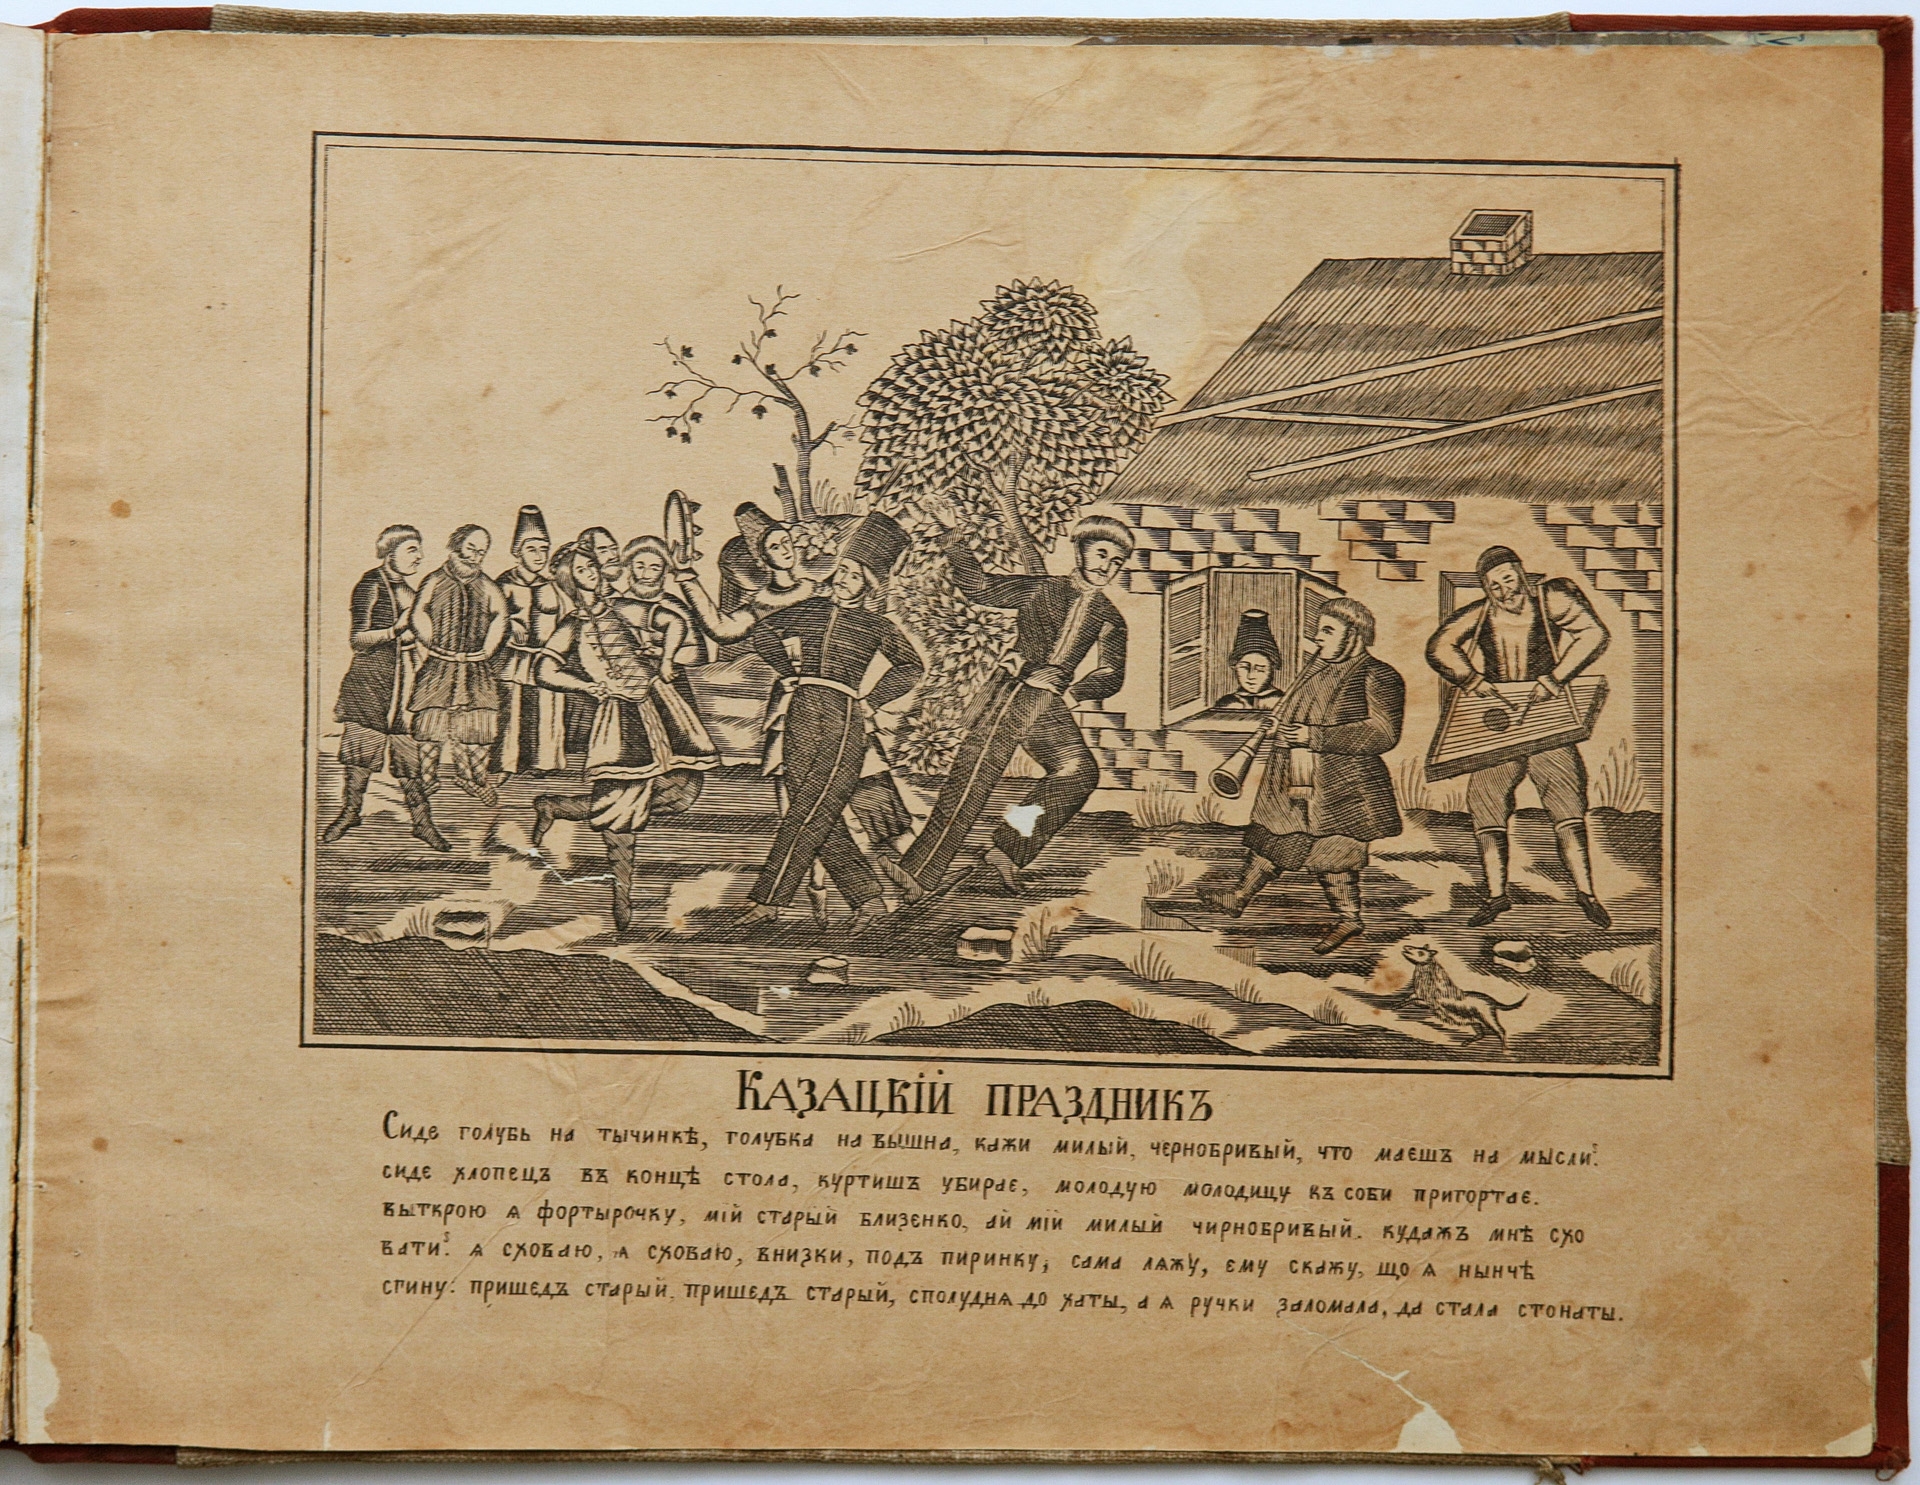 КАЗАЦКІЙ ПРАЗДНИКЪ
Сиде голубь на тычинкѣ, голубка на вышна, кажи милый, чернобривый, что маешъ на мысли?
сиде хлопецъ въ концѣ стола, куртишъ убирае, молодую молодицу къ соби пригортае.
выткрою ѧ фортырочку, мій старый близенко, ай мій милый чирнобривый. кудажъ мнѣ схо
вати? ѧ сховаю, ѧ сховаю, внизки, подъ пиринку; сама лѧжу, ему скажу, що ѧ нынчѣ
сгину: пришедъ старый, пришедъ старый, сполуднѧ до хаты, а ѧ ручки заломала, да стала стонаты.